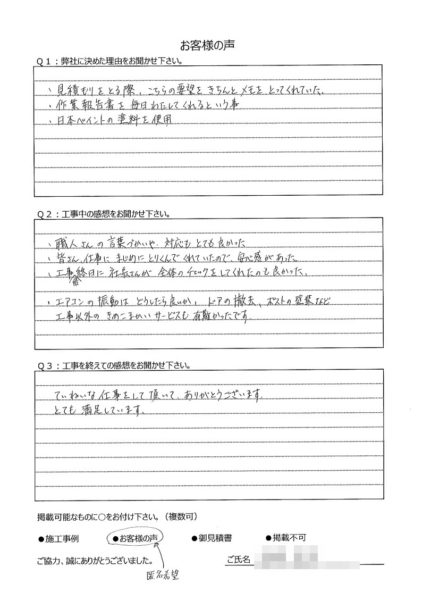 お客様の声
Q1:弊社に決めた理由をお聞かせ下さい。
・見積もりをとる際、こちらの要望をきちんとメモをとってくれていた。
・作業報告書を毎日わたしてくれるという事
・日本ペイントの塗料を使用
Q2:工事中の感想をお聞かせ下さい。
・職人さんの言葉づかいや、対応もとても良かった
・皆さん仕事にまじめにとりくんでくれていたので、安心感があった。
・工事終日に社長さんが全体のチェックをしてくれたのも良かった。
・エアコンの振動はどうしたら良いか、ドアの撤去、ポストの塗装など
工事以外のきめこまかいサービスも有難かったです。
Q3:工事を終えての感想をお聞かせ下さい。
ていねいな仕事をして頂いて、ありがとうございます。
とても満足しています。
掲載可能なものに○をお付け下さい。(複数可)
●施工事例 ●お客様の声 ●御見積書 ●掲載不可
ご協力、誠にありがとうございました。 ご氏名
匿名希望